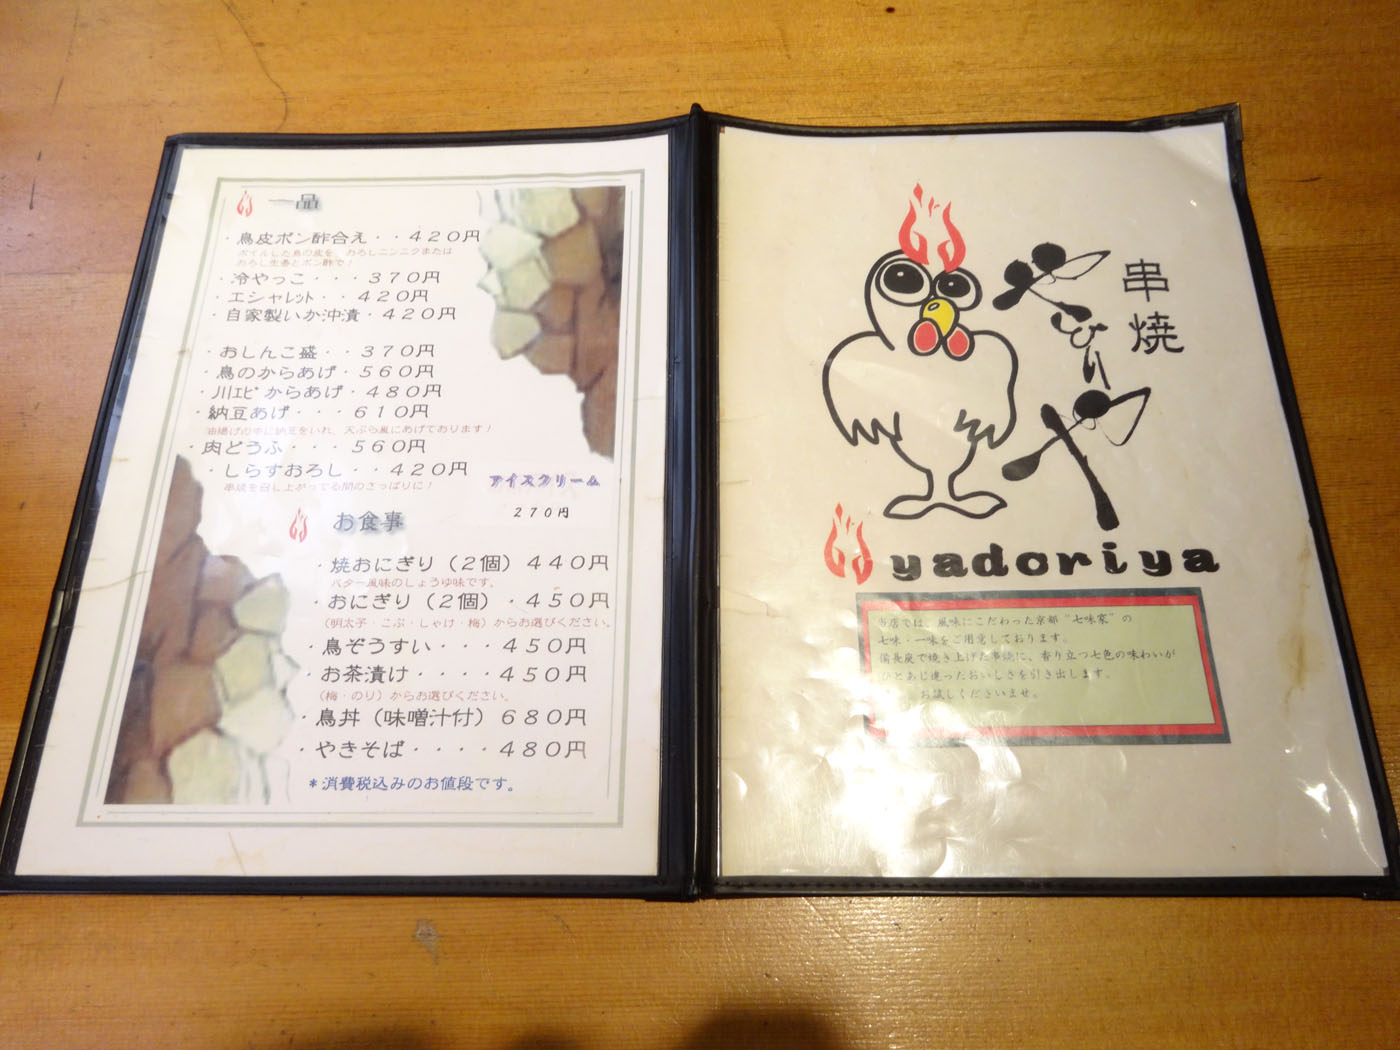 一品
・鳥皮ポン酢合え・・４２０円
ボイルした鳥の皮を、おろしニンニクまたは
おろし生姜とポン酢で！
・冷やっこ・・・３７０円
・エシャレット・・４２０円
・自家製いか沖漬・４２０円
・おしんこ盛・・３７０円
・鳥のからあげ・５６０円
・川エビからあげ・４８０円
・納豆あげ・・・６１０円
油揚げの中に納豆をいれ、天ぷら風にあげております！
・肉どうふ・・・５６０円
・しらすおろし・・４２０円
串焼を召し上がってる間のさっぱりに！
アイスクリーム
２７０円
お食事
・焼おにぎり（２個）４４０円
バター風味のしょうゆ味です。
・おにぎり（２個）・４５０円
（明太子・こぶ・しゃけ・梅）からお選びください。
・鳥ぞうすい・・・４５０円
・お茶漬け・・・・４５０円
（梅・のり）からお選びください。
・鳥丼（味噌汁付）６８０円
・やきそば・・・・４８０円
＊消費税込みのお値段です。
串焼
やどりや
yadoriya
当店では、風味にこだわった京都“七味家”の
七味・一味をご用意しております。
備長炭で焼き上げた串焼に、香り立つ七色の味わいが
ひとあじ違ったおいしさを引き出します。
お試しくださいませ。